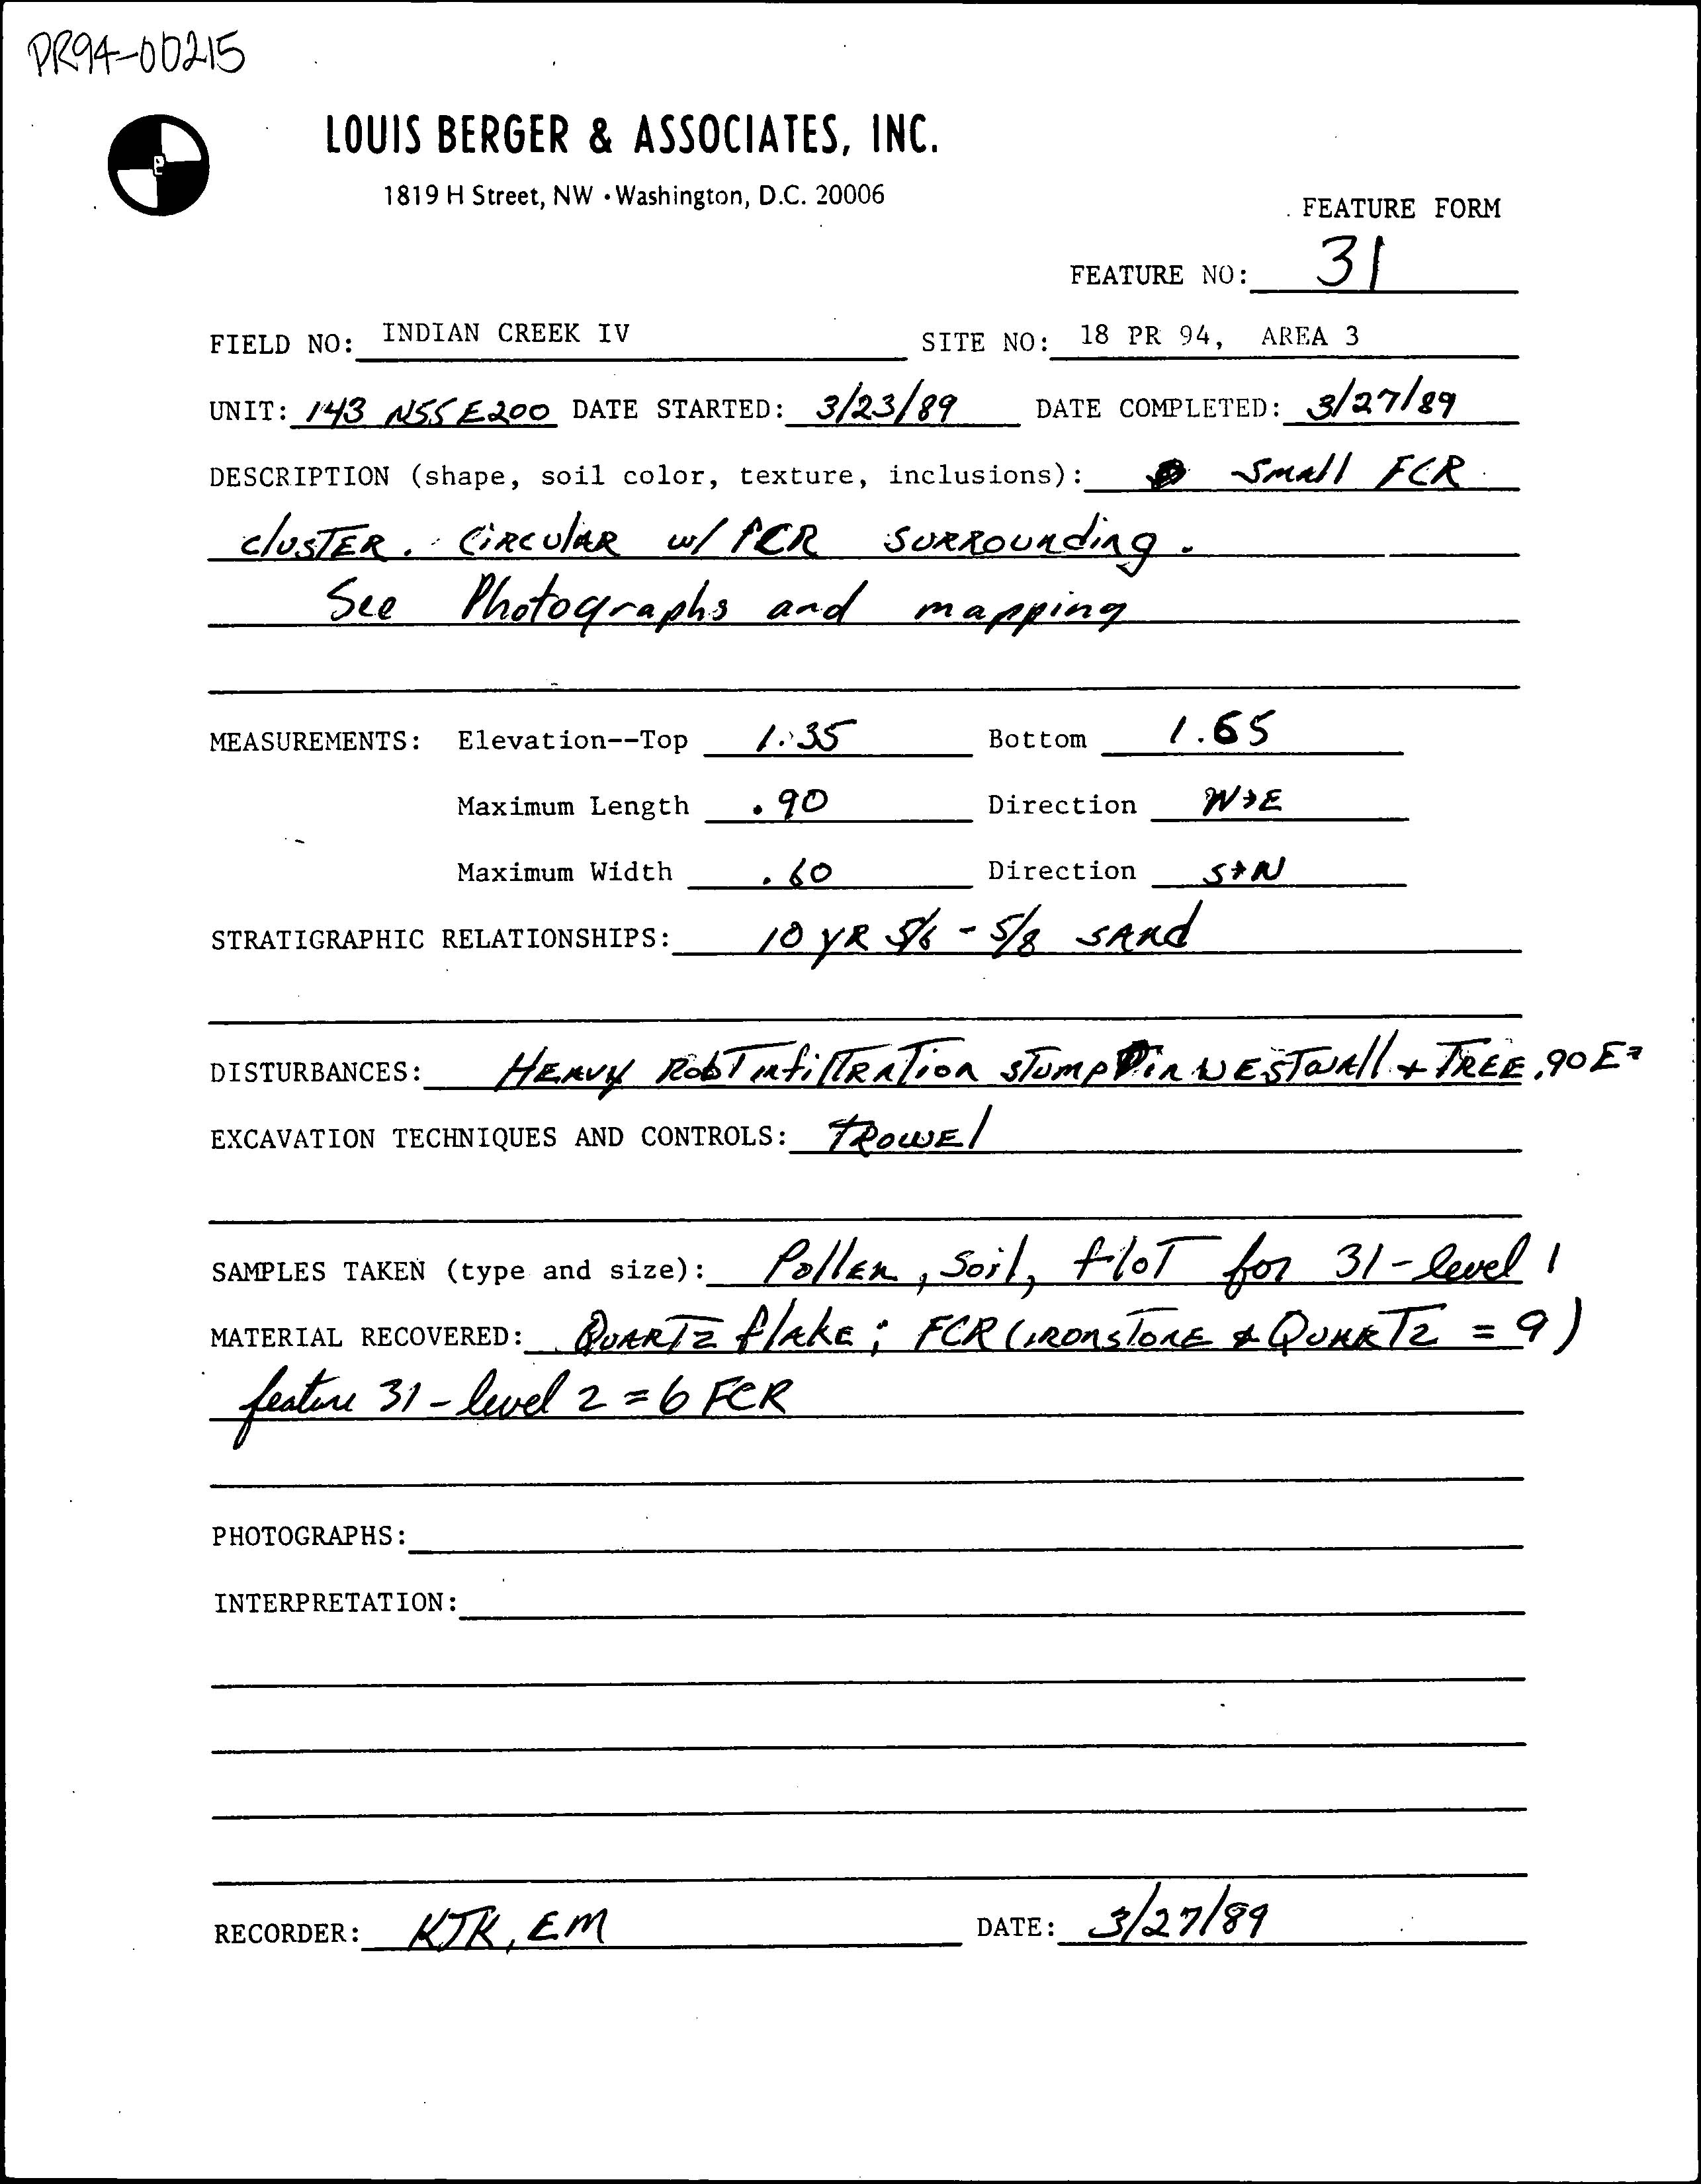 PR94-00215
LOUIS BERGER & ASSOCIATES, INC.
1819 H Street, NW · Washington, D.C. 20006
FEATURE FORM
FEATURE NO: 31
FIELD NO: INDIAN CREEK IV SITE NO: 18 PR 94, AREA 3
UNIT: 143 N55 E200 DATE STARTED: 3/23/89 DATE COMPLETED: 3/27/89
DESCRIPTION (shape, soil color, texture, inclusions): Small FCR
cluSTER. CiRculAR w/ FCR SURROUnding.
See Photographs and mapping
MEASUREMENTS: Elevation--Top 1.35 Bottom 1.65
Maximum Length .90 Direction W→E
Maximum Width .60 Direction S→N
STRATIGRAPHIC RELATIONSHIPS: 10 YR 5/6 - 5/8 SAnd
DISTURBANCES: HEAVY RooT infilTRATion STump in WESTwAll + TREE .90 E
EXCAVATION TECHNIQUES AND CONTROLS: TROWEl
SAMPLES TAKEN (type and size): PollEn, Soil, floT for 31-level 1
MATERIAL RECOVERED: QUARTZ flAkE; FCR (iRONSTONE & QUARTZ = 9)
feature 31 - level 2 = 6 FCR
PHOTOGRAPHS:
INTERPRETATION:
RECORDER: KJK, EM DATE: 3/27/89